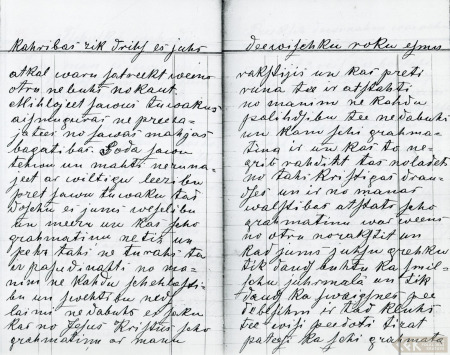 kahribas tik drihs es juhs
atkal waru satreekt weens
otru ne buhs nokaut
Mihlojeet sawus tuwakus
aismuguras ne preeza-
jatees no sawas mahjas
bagatibas. Goda sawu
tehwu un mahti ne runa-
jeet ar wiltigu leezibu
pret sawu tuwaku tas
došchu es jums weselibu
un meeru un kas scho
grahmatinu netiz un
pehz tahs ne turahs ta
ir pasudinats no ma-
nim ne kahdu schehlasti-
bu un swehtibu nedz
laimi ne dabuhs es seku
kas no Jesus Kristus scho
grahmatinu ar manu
deewischku roku esmu
rakstijis un kas preti
runa tee ir atstahti
no manim ne kahdu
palihdsibu tee ne dabuhs
un kam schi grahma-
tina ir un kas to ne-
grib rahdiht tas nolahdets
no tahs Kristigas drau-
dses un ir no manas
walstibas atstats scho
grahmatinu war weens
no otru norakstit un
kad jums juhsu grehku
tik daudz buhtu ka smil-
schu juhrmalā un tik
daudz ka swaigsnes pee
debesihm ir tad kluhs
tee wisi peedoti tizat
pateesi ka schi grahmata